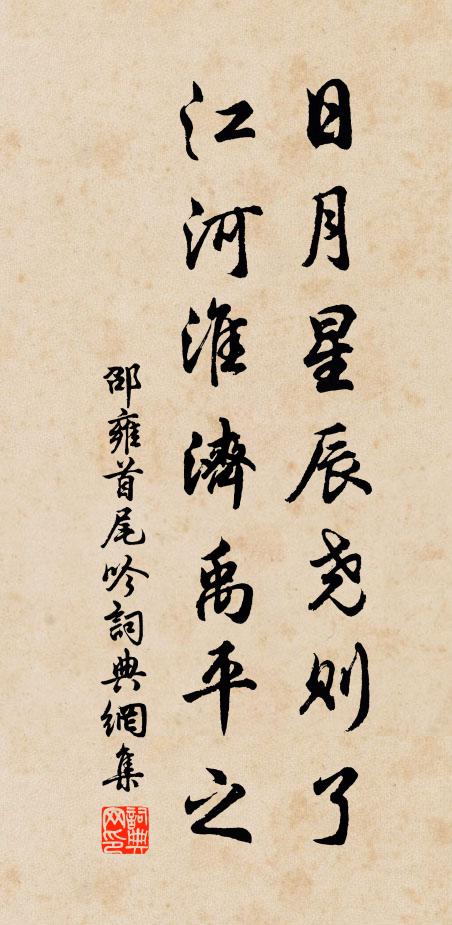 日月星辰尧则了
江河淮濟禹平之
邵雍首尾吟詞典網集
詞典网印